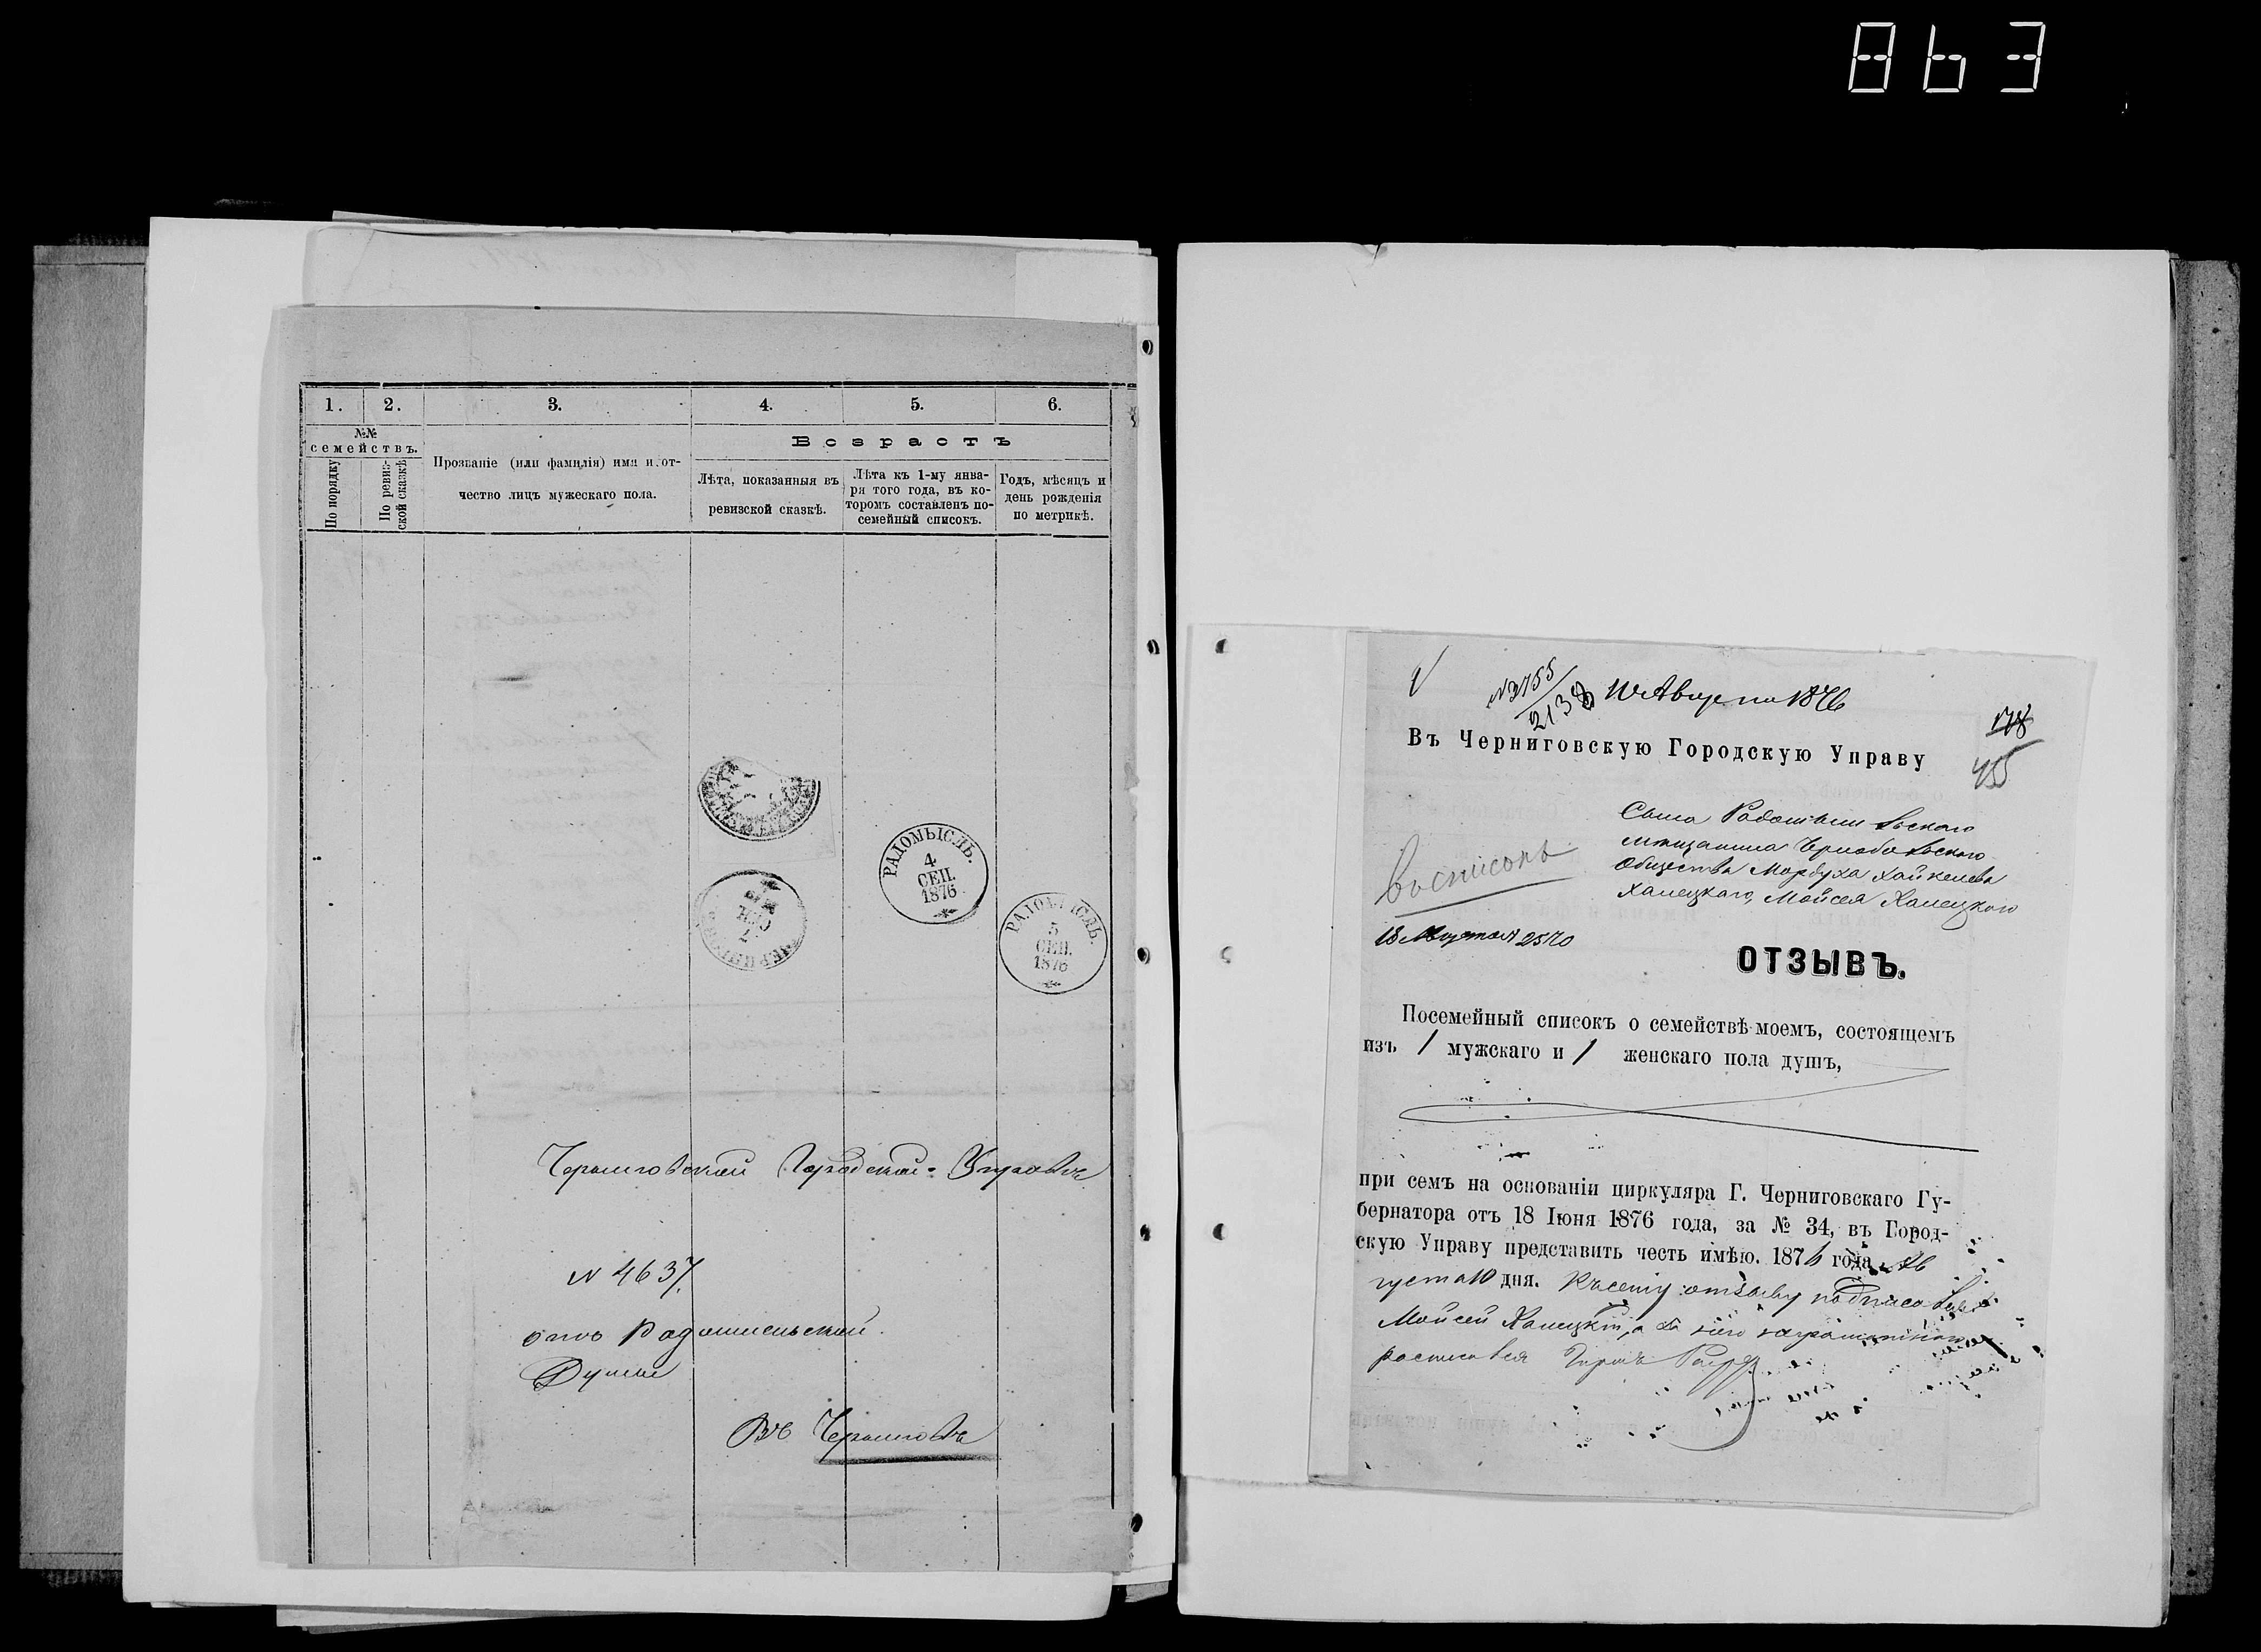 863
1. 2. 3. 4. 5. 6.
№№
семействъ.
По порядку
По ревиз-
ской сказкѣ
Прозваніе (или фамилія) имя и от-
чество лицъ мужескаго пола.
Возрастъ
Лѣта, показанныя въ
ревизской сказкѣ.
Лѣта къ 1-му янва-
ря того года, въ ко-
торомъ составленъ по-
семейный списокъ.
Годъ, мѣсяцъ и
день рожденія
по метрикѣ.
РАДОМЫСЛЬ.
4
СЕП.
1876
РАДОМЫСЛЬ.
5
СЕП.
1876
Черниговской Городской Управѣ
N 4637
отъ Радомысльской
Думы
Въ Черниговъ
N 2155
2138
10 Августа 1876
178
455
Въ Черниговскую Городскую Управу
Сына Радомысльскаго
мѣщанина Чернобыльскаго
Общества Мордуха Хайкелева
Ханецкаго, Мойсея Ханецкаго
18 Августа 2570
ОТЗЫВЪ.
Посемейный списокъ о семействѣ моемъ, состоящемъ
изъ 1 мужскаго и 1 женскаго пола душъ,
при семъ на основаніи циркуляра Г. Черниговскаго Гу-
бернатора отъ 18 Іюня 1876 года, за № 34, въ Город-
скую Управу представить честь имѣю. 1876 года Ав
густа 10 дня. Къ сему отзыву подписался
Мойсей Ханецкій, а за него неграмотнаго
росписался